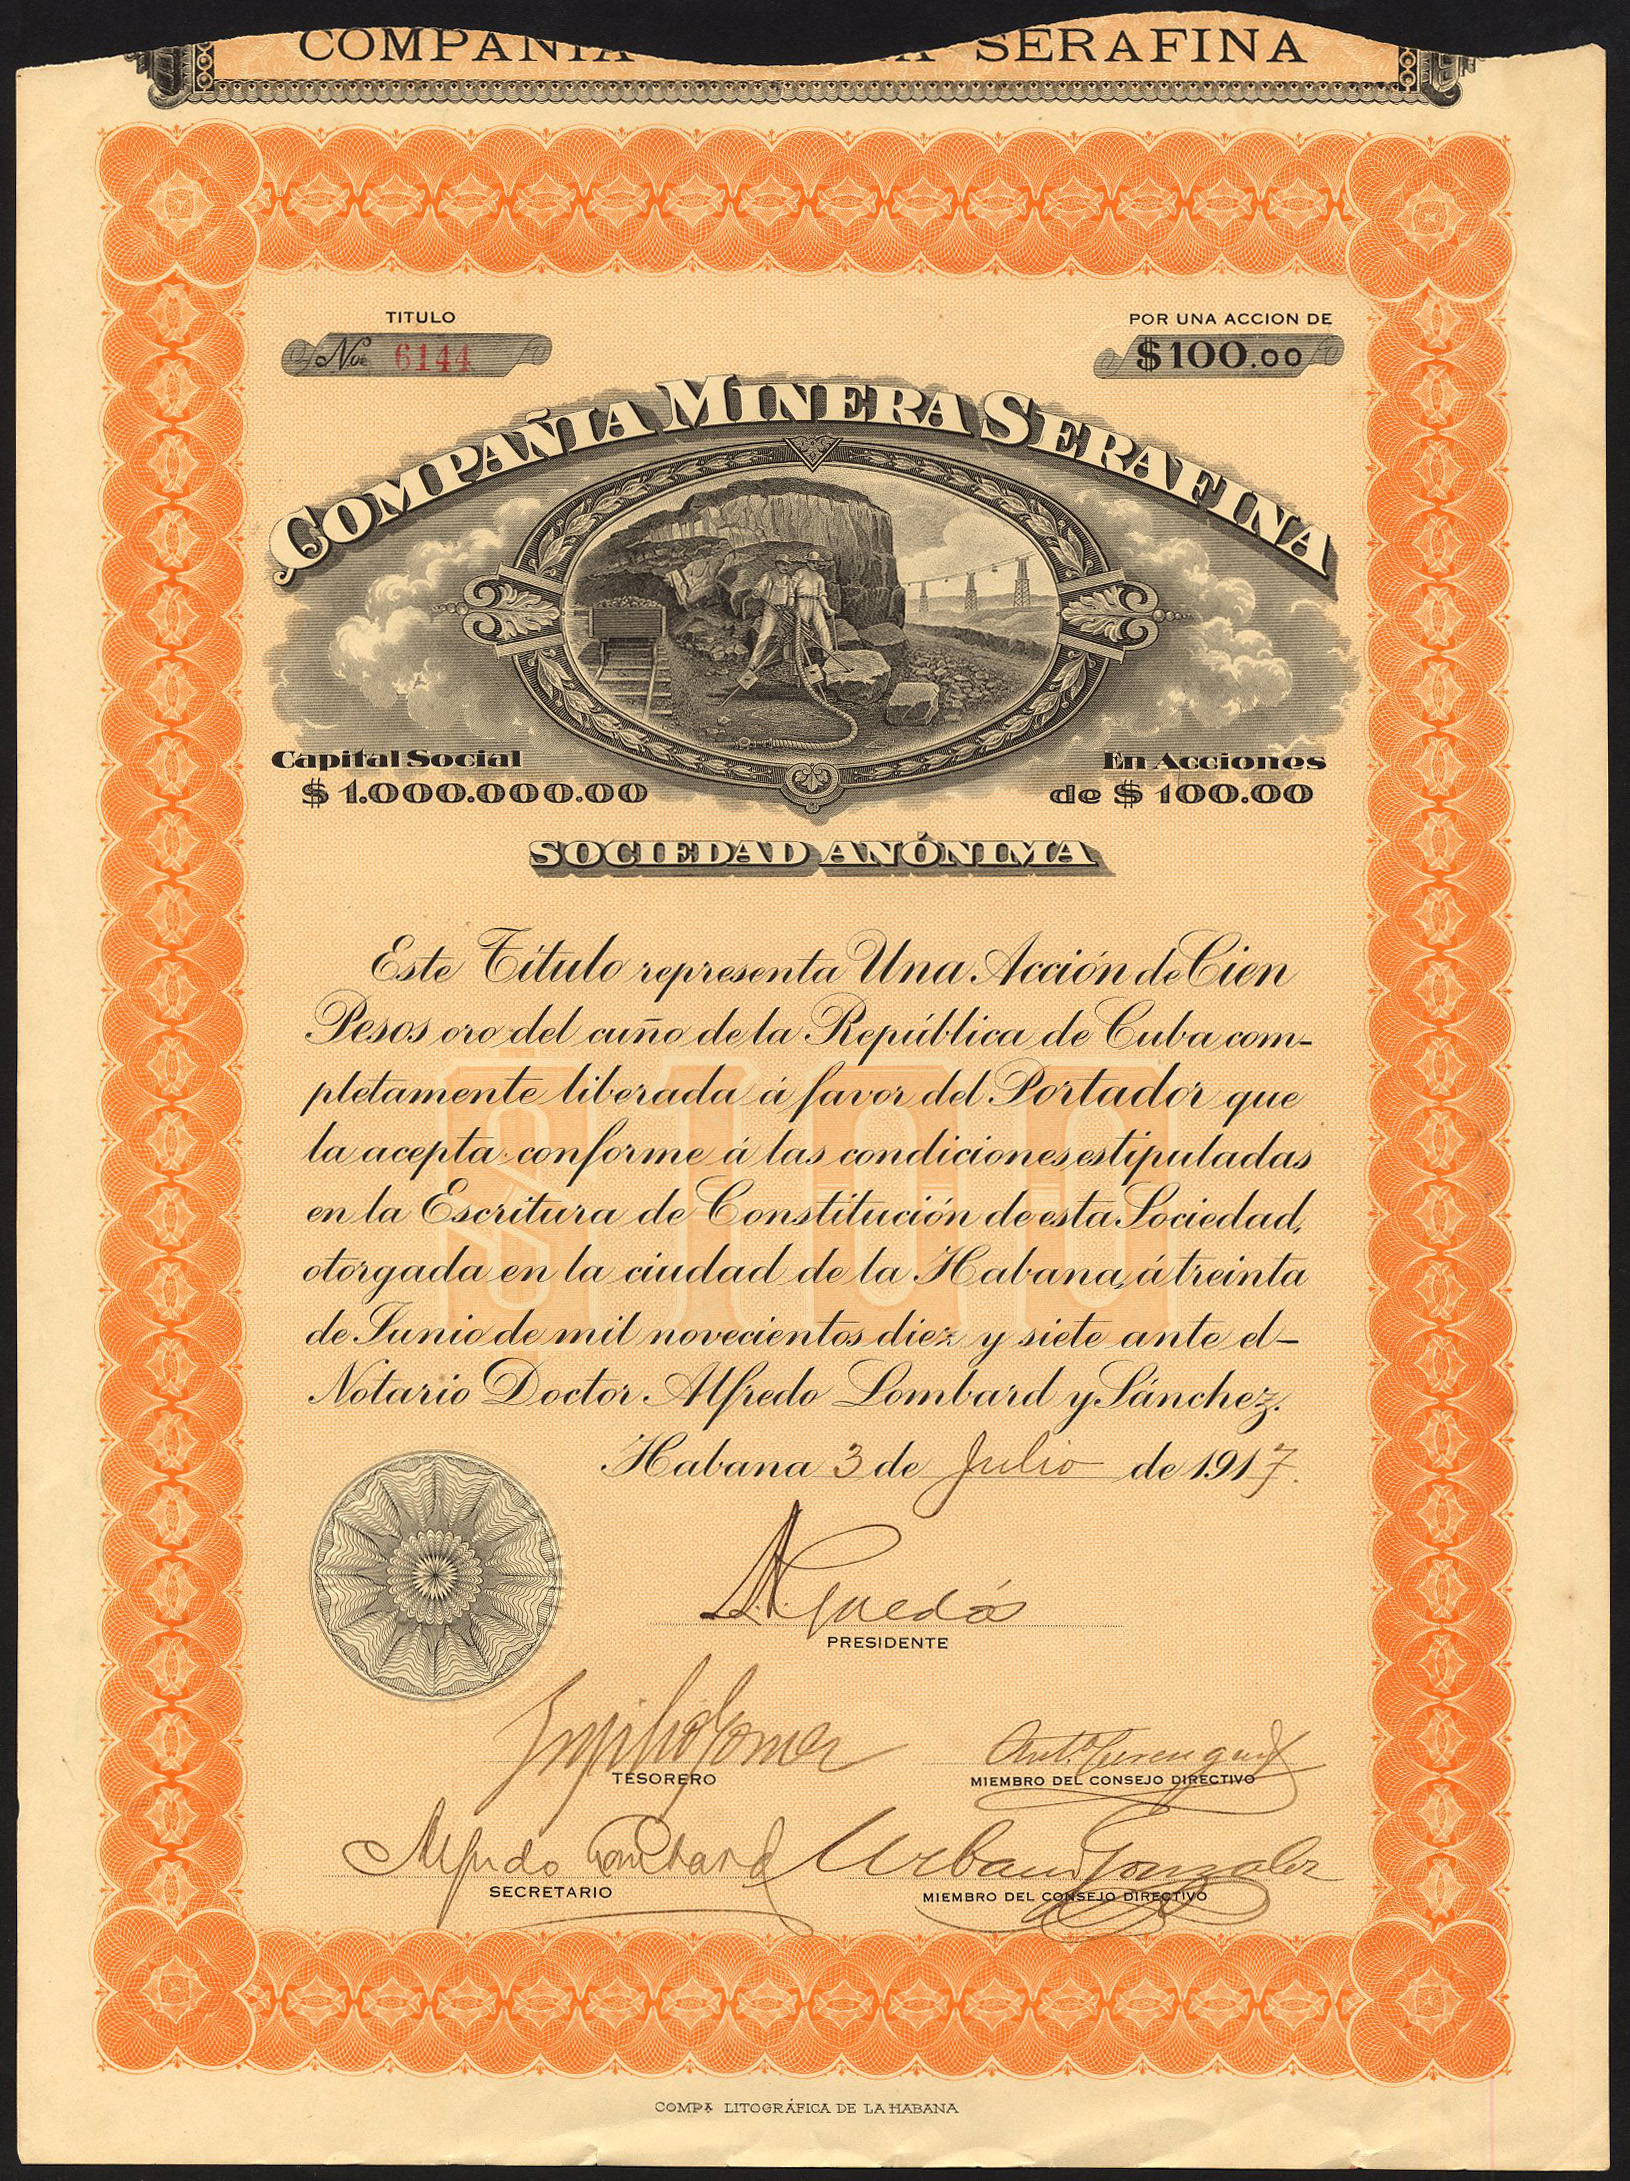 COMPAÑIA SERAFINA
TITULO
No. 6144
POR UNA ACCION DE
$100.00
COMPAÑIA MINERA SERAFINA
Capital Social
$ 1.000.000.00
En Acciones
de $ 100.00
SOCIEDAD ANÓNIMA
$100
Este Título representa Una Acción de Cien
Pesos oro del cuño de la República de Cuba com-
pletamente liberada á favor del Portador que
la acepta conforme á las condiciones estipuladas
en la Escritura de Constitución de esta Sociedad,
otorgada en la ciudad de la Habana, á treinta
de Junio de mil novecientos diez y siete ante el-
Notario Doctor Alfredo Lombard y Sánchez.
Habana 3 de Julio de 1917.
PRESIDENTE
TESORERO
MIEMBRO DEL CONSEJO DIRECTIVO
Alfredo Lombard
SECRETARIO
Urbano Gonzalez
MIEMBRO DEL CONSEJO DIRECTIVO
COMPA LITOGRÁFICA DE LA HABANA